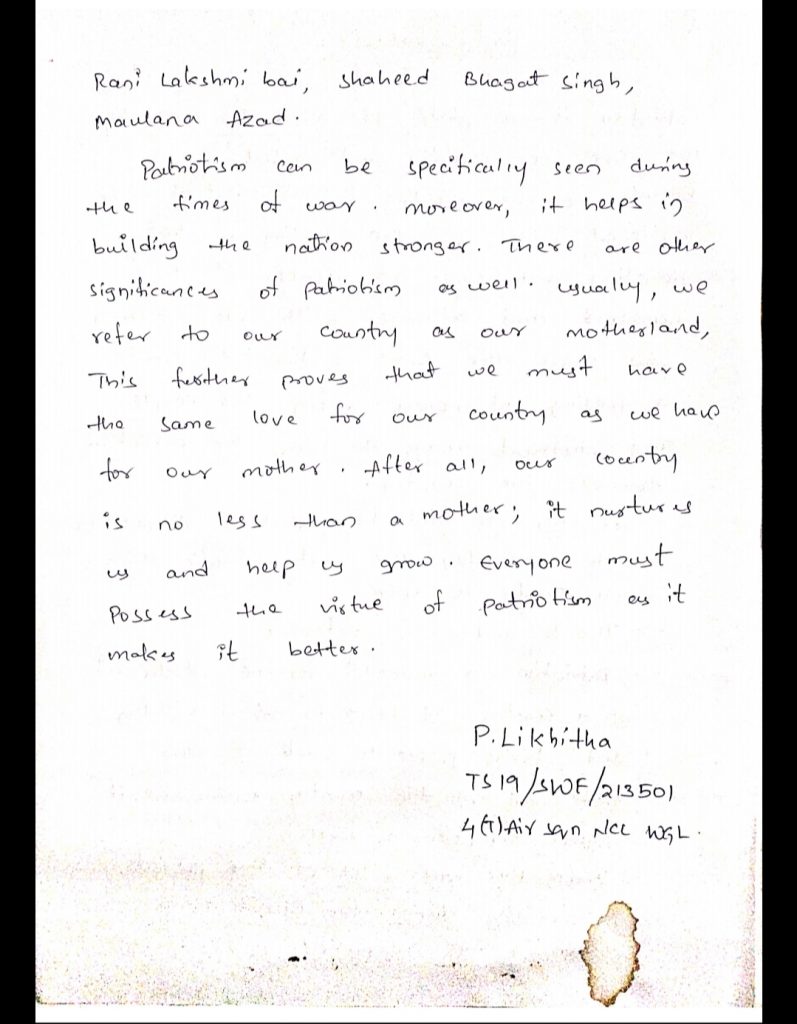 Rani Lakshmi bai, Shaheed Bhagat Singh,
Maulana Azad.
Patriotism can be specifically seen during
the times of war. Moreover, it helps in
building the nation stronger. There are other
significances of patriotism as well. usually, we
refer to our country as our motherland,
This further proves that we must have
the same love for our country as we have
for our mother. After all, our country
is no less than a mother; it nurtures
us and help us grow. Everyone must
Possess the virtue of patriotism as it
makes it better.
P. Likhitha
TS19/SWF/213501
4(T)Air sqn NCC WGL.